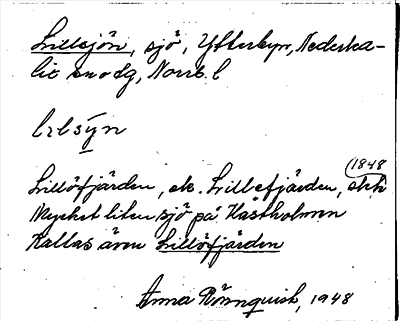 Lillsjön, sjö, Ytterbyn, Nederka-
lix sndg, Norrb. l
Lillöfjärden, ek. Lillefjärden,
(1848
Mycket liten sjö på Hästholmen
Kallas även Lillöfjärden
Anna Rönnquist, 1948